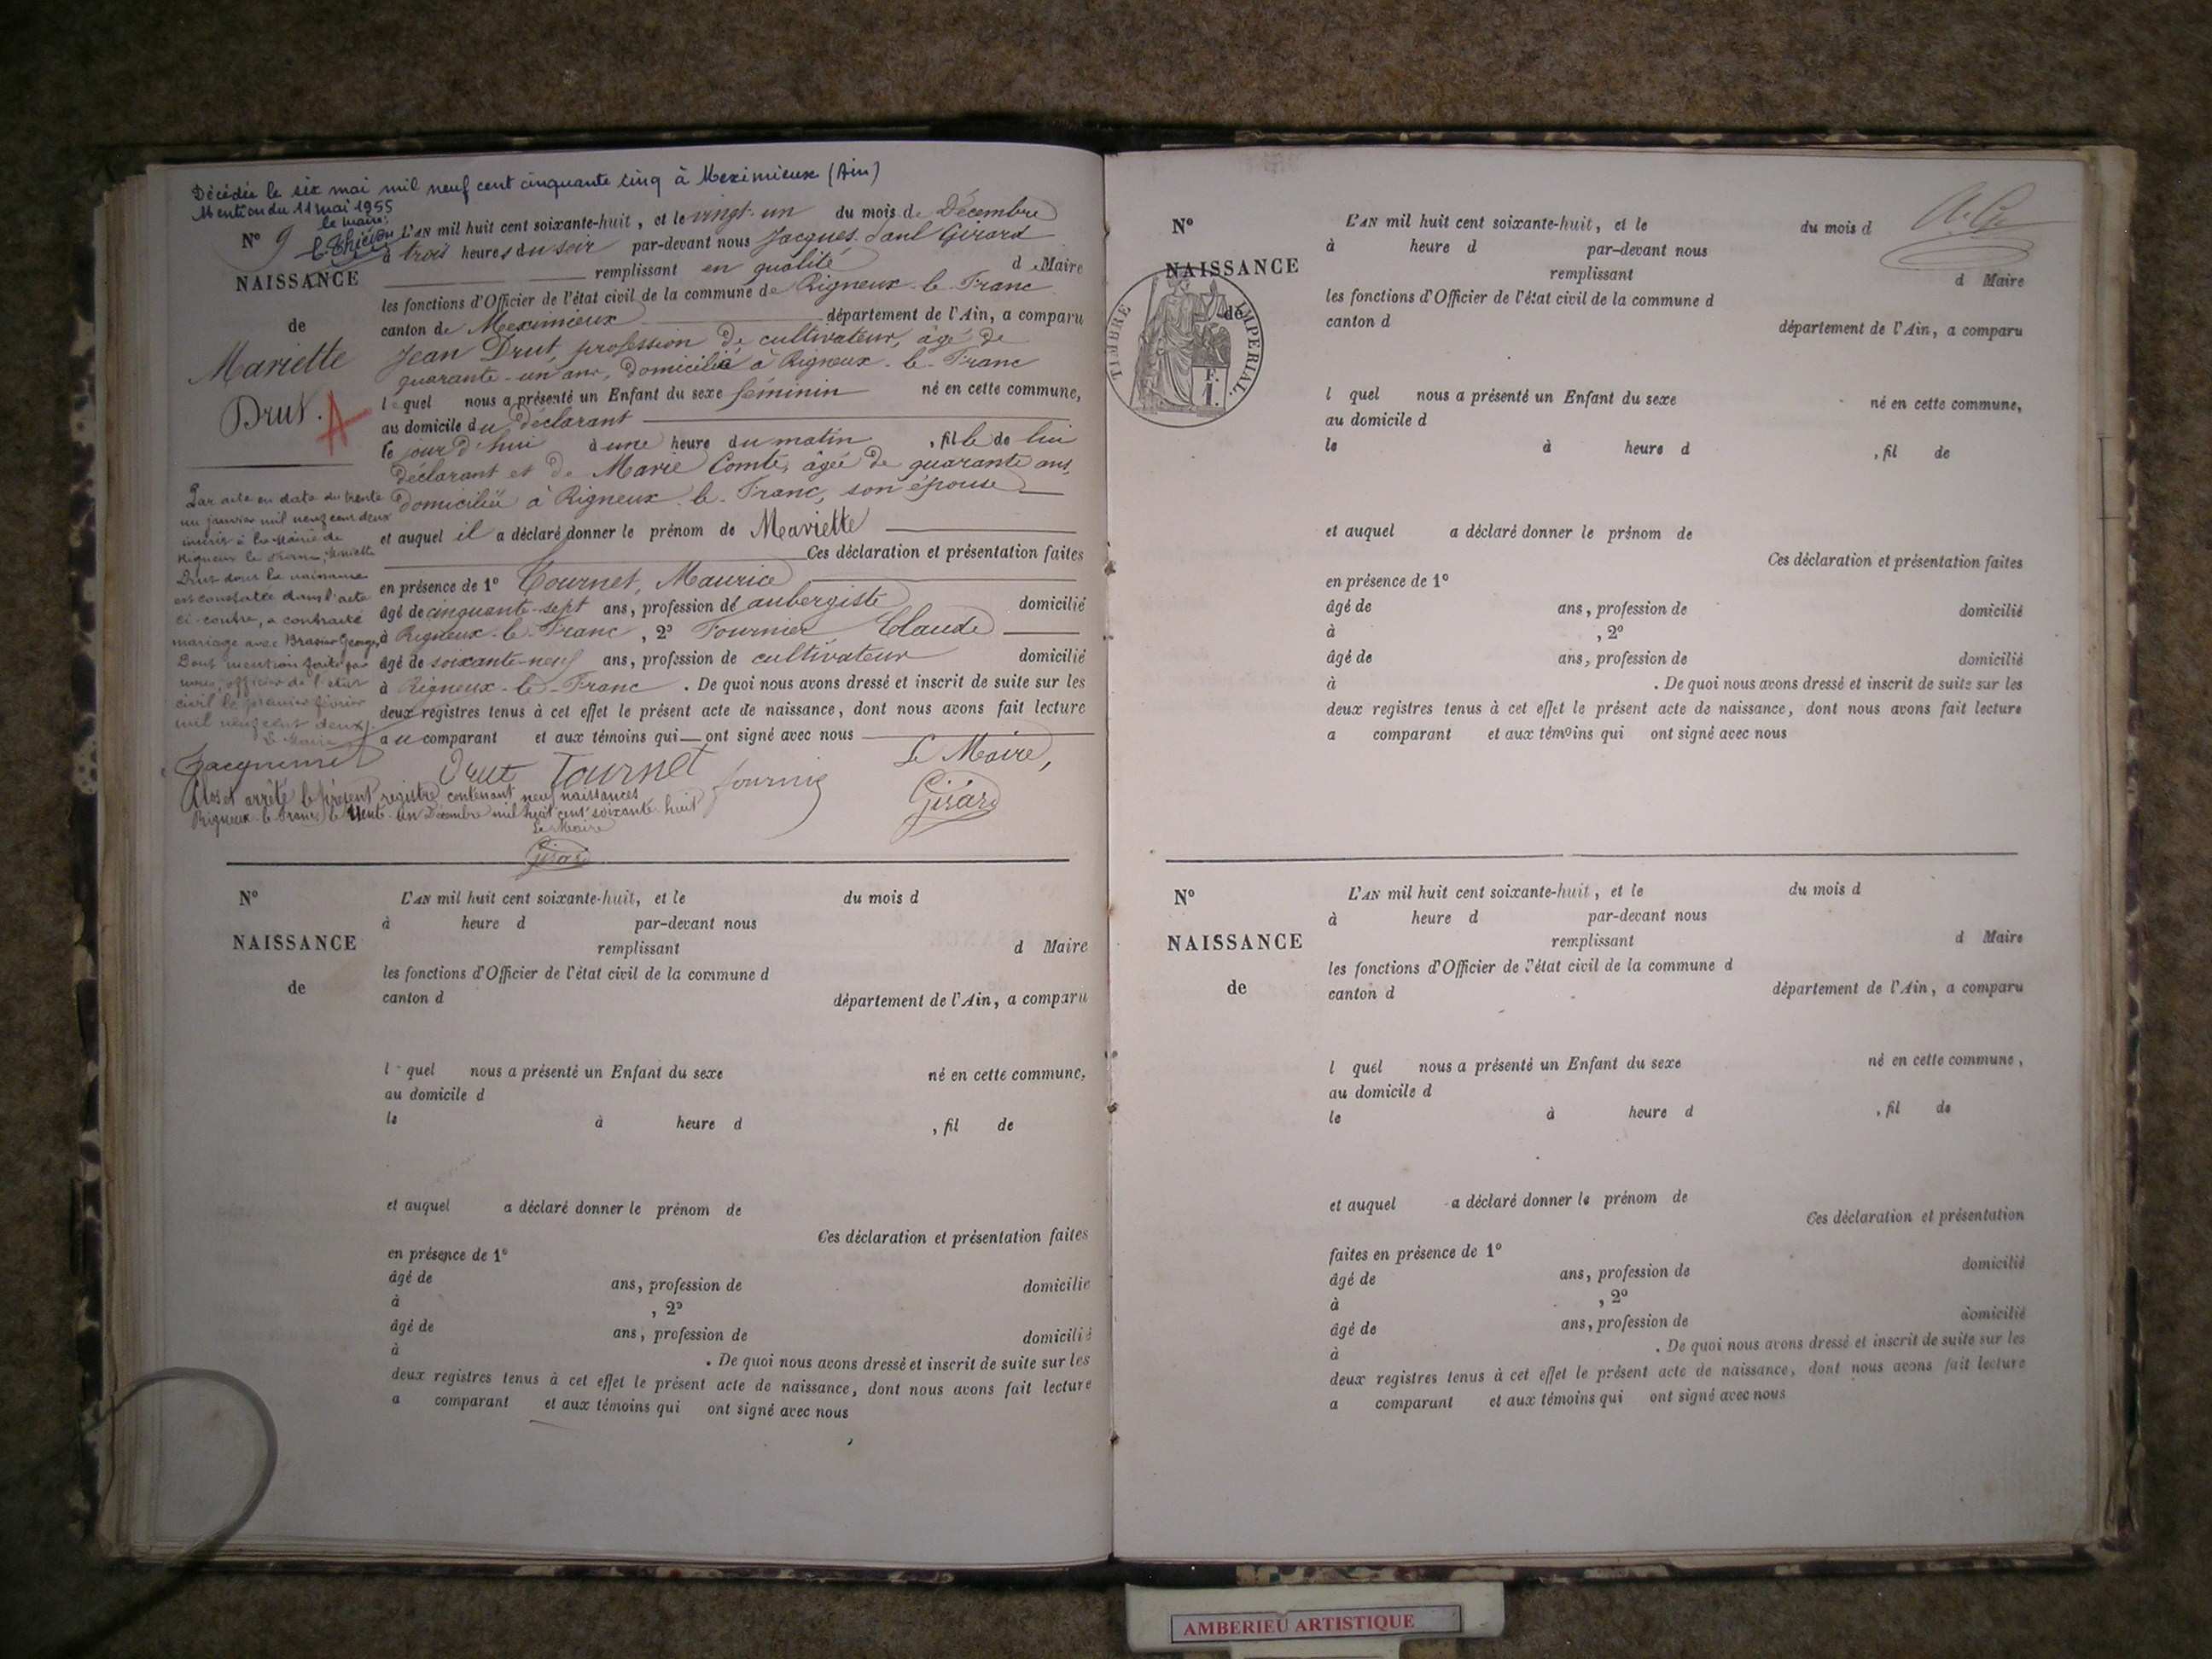 Décédée le six mai mil neuf cent cinquante cinq à Meximieux (Ain)
Mention du 11 mai 1955
le maire:
N° 9
NAISSANCE
de
Mariette
Drut.
A
L'AN mil huit cent soixante-huit, et le vingt-un du mois de Décembre
à trois heures du soir par-devant nous Jacques Paul Girard
remplissant en qualité de Maire
les fonctions d'Officier de l'état civil de la commune de Rigneux-le-Franc
canton de Meximieux département de l'Ain, a comparu
Jean Drut, profession de cultivateur, âgé de
quarante-un ans, domicilié à Rigneux-le-Franc
lequel nous a présenté un Enfant du sexe féminin né en cette commune,
au domicile du déclarant
le jour d'hui à une heure du matin, fille de lui
déclarant et de Marie Comte, âgée de quarante ans,
domiciliée à Rigneux-le-Franc, son épouse
et auquel il a déclaré donner le prénom de Mariette
Ces déclaration et présentation faites
en présence de 1° Tournet, Maurice
âgé de cinquante-sept ans, profession de aubergiste domicilié
à Rigneux-le-Franc, 2° Fournier Claude
âgé de soixante-neuf ans, profession de cultivateur domicilié
à Rigneux-le-Franc. De quoi nous avons dressé et inscrit de suite sur les
deux registres tenus à cet effet le présent acte de naissance, dont nous avons fait lecture
au comparant et aux témoins qui ont signé avec nous
Par acte en date du trente
un janvier mil neuf cent deux
inscrit à la Mairie de
Rigneux le Franc, Mariette
Drut dont la naissance
est constatée dans l'acte
ci-contre, a contracté
mariage avec Brasier Georges
Dont mention faite par
nous, officier de l'état
civil le premier février
mil neuf cent deux
Le Maire
Jacquemet
Drut Tournet Fournier
Le Maire,
Girard
Clos et arrêté le présent registre contenant neuf naissances
Rigneux-le-Franc le trente-un Décembre mil huit cent soixante-huit
Le Maire
Girard
N°
NAISSANCE
de
L'AN mil huit cent soixante-huit, et le du mois d
à heure d par-devant nous
remplissant d Maire
les fonctions d'Officier de l'état civil de la commune d
canton d département de l'Ain, a comparu
l quel nous a présenté un Enfant du sexe né en cette commune,
au domicile d
le à heure d , fil de
et auquel a déclaré donner le prénom de
Ces déclaration et présentation faites
en présence de 1°
âgé de ans, profession de domicilié
à , 2°
âgé de ans, profession de domicilié
à . De quoi nous avons dressé et inscrit de suite sur les
deux registres tenus à cet effet le présent acte de naissance, dont nous avons fait lecture
a comparant et aux témoins qui ont signé avec nous
N°
NAISSANCE
de
TIMBRE IMPERIAL
F.
1.
L'AN mil huit cent soixante-huit, et le du mois d
à heure d par-devant nous
remplissant d Maire
les fonctions d'Officier de l'état civil de la commune d
canton d département de l'Ain, a comparu
l quel nous a présenté un Enfant du sexe né en cette commune,
au domicile d
le à heure d , fil de
et auquel a déclaré donner le prénom de
Ces déclaration et présentation faites
en présence de 1°
âgé de ans, profession de domicilié
à , 2°
âgé de ans, profession de domicilié
à . De quoi nous avons dressé et inscrit de suite sur les
deux registres tenus à cet effet le présent acte de naissance, dont nous avons fait lecture
a comparant et aux témoins qui ont signé avec nous
N°
NAISSANCE
de
L'AN mil huit cent soixante-huit, et le du mois d
à heure d par-devant nous
remplissant d Maire
les fonctions d'Officier de l'état civil de la commune d
canton d département de l'Ain, a comparu
l quel nous a présenté un Enfant du sexe né en cette commune,
au domicile d
le à heure d , fil de
et auquel a déclaré donner le prénom de
Ces déclaration et présentation
faites en présence de 1°
âgé de ans, profession de domicilié
à , 2°
âgé de ans, profession de domicilié
à . De quoi nous avons dressé et inscrit de suite sur les
deux registres tenus à cet effet le présent acte de naissance, dont nous avons fait lecture
a comparant et aux témoins qui ont signé avec nous
AMBERIEU ARTISTIQUE